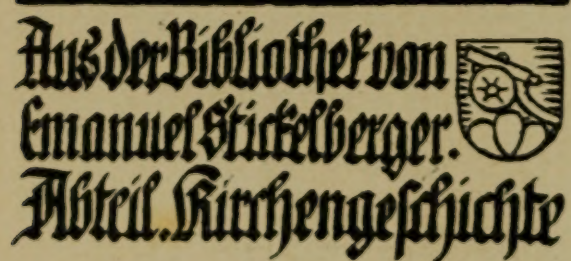 Aus der Bibliothek von
Emanuel Stickelberger.
Abteil. Kirchengeschichte